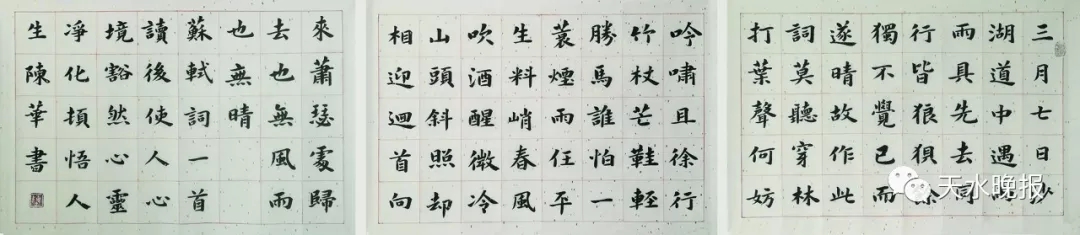 三月七日沙
湖道中遇雨
雨具先去同
行皆狼狽余
獨不覺已而
遂晴故作此
詞莫聽穿林
打葉聲何妨
吟嘯且徐行
竹杖芒鞋輕
勝馬誰怕一
蓑煙雨任平
生料峭春風
吹酒醒微冷
山頭斜照却
相迎迴首向
來蕭瑟處歸
去也無風雨
也無晴
蘇軾詞一首
讀後使人心
境豁然心靈
淨化頓悟人
生陳華書
天水晚报